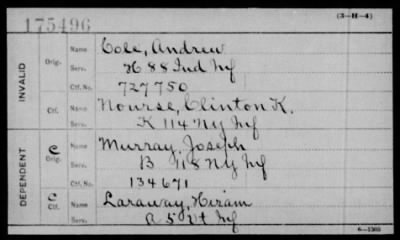 175496
(3-H-4)
INVALID
Orig.
Name Cole, Andrew
Serv. H 88 Ind Inf
Ctf. No. 727750
Ctf.
Name Nourse, Clinton K.
Serv. K 114 Ny Inf
DEPENDENT
C Orig.
Name Murray, Joseph
Serv. B 118 Ny Inf
Ctf. No. 134671
C Ctf.
Name Laraway, Hiram
Serv. A 5 Vt Inf
6-1303